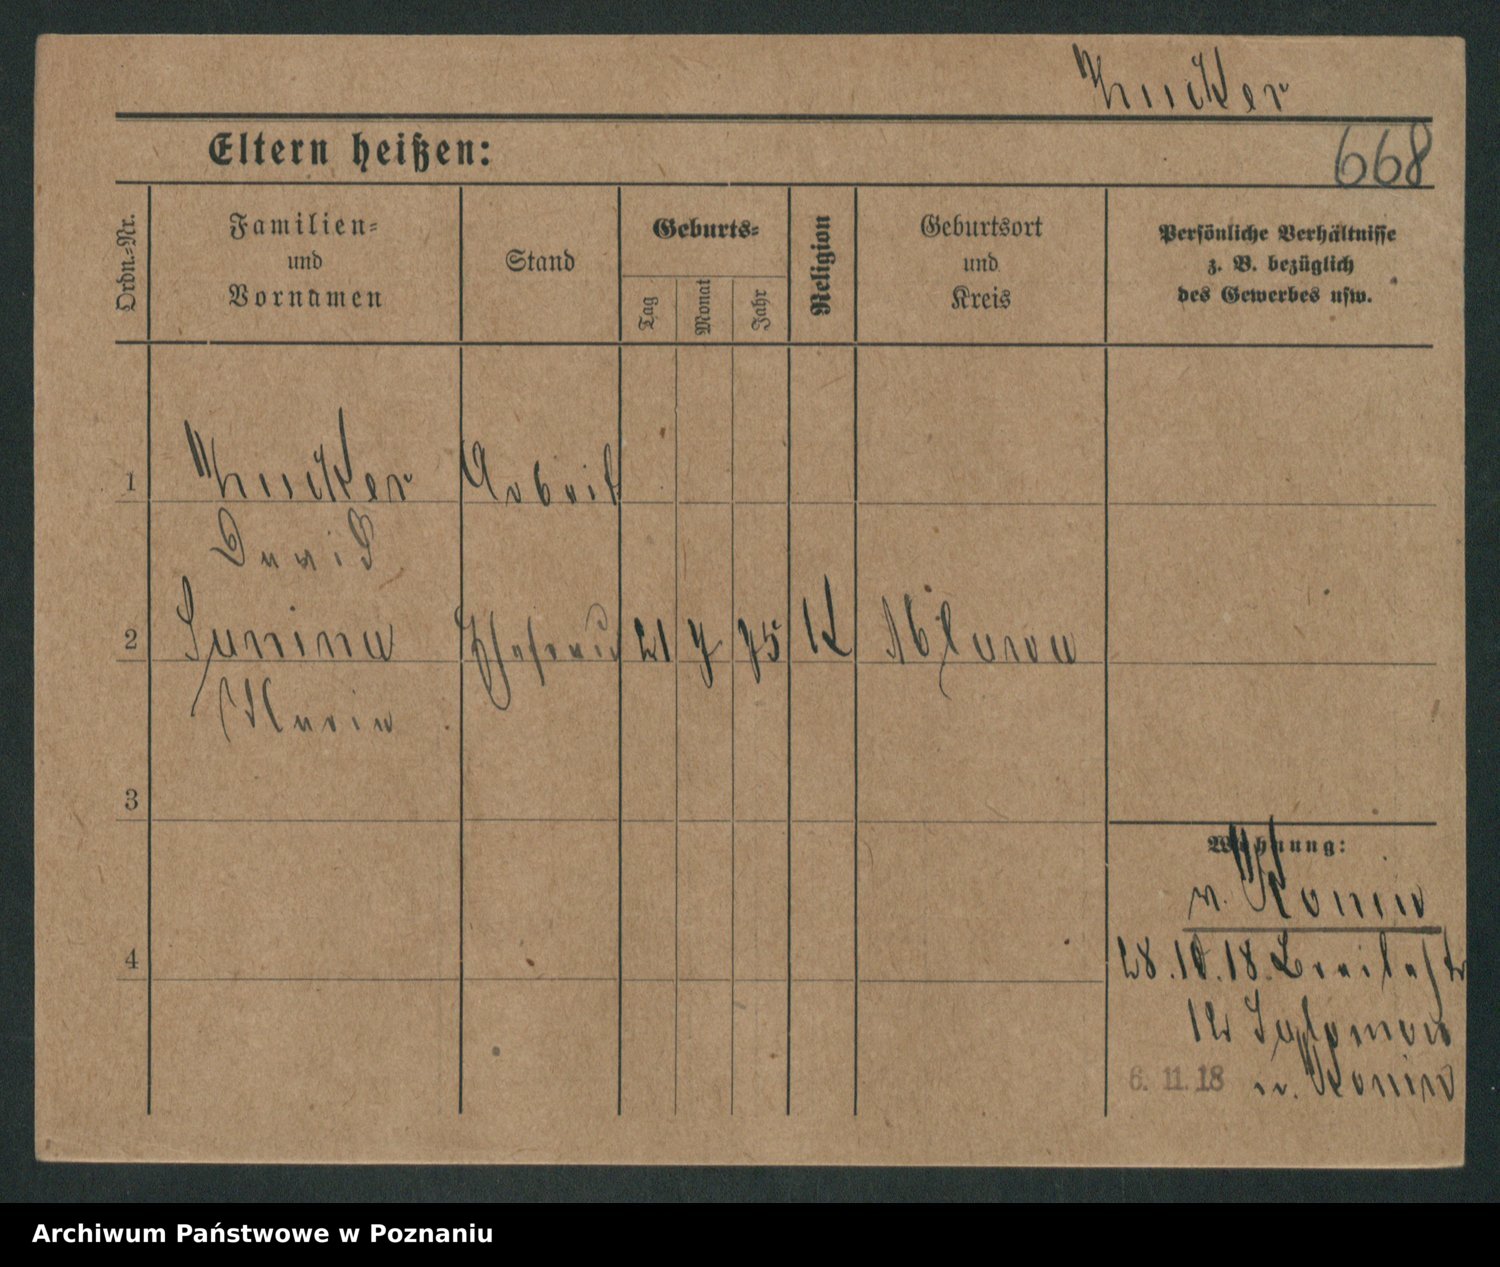 Zucker
668
Eltern heißen:
Ordn.=Nr.
Familien=
und
Vornamen
Stand
Geburts=
Tag
Monat
Jahr
Religion
Geburtsort
und
Kreis
Persönliche Verhältnisse
z. B. bezüglich
des Gewerbes usw.
1
Arbeit
2
Janina
Ehefrau
21
7
75
K
Maria
3
4
Wohnung:
v. Konin
28.10.18 Breitestr
12
6. 11. 18
n. Konin
Archiwum Państwowe w Poznaniu